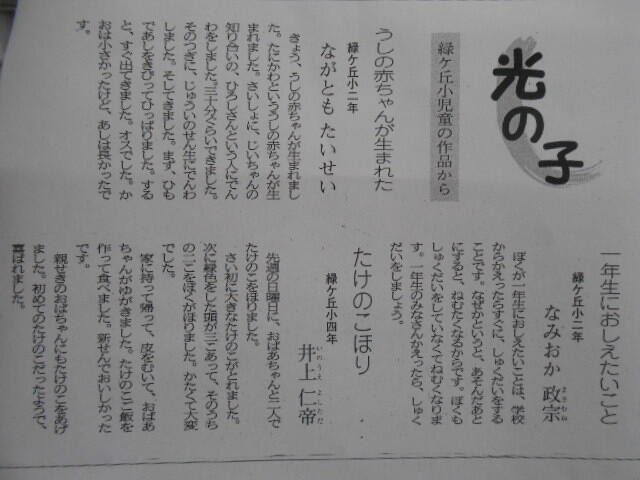 光の子
緑ケ丘小児童の作品から
うしの赤ちゃんが生まれた
緑ケ丘小二年
ながとも たいせい
きょう、うしの赤ちゃんが生まれまし
た。たにかわといううしの赤ちゃんが生
まれました。さいしょに、じいちゃんの
知り合いの、ひろしさんという人にでん
わをしました。三十分くらいできました。
そのつぎに、じゅういのせん生にでんわ
しました。そしてきました。まず、ひも
であしをきびってひっぱりました。する
と、すぐ出てきました。オスでした。か
おは小さかったけど、あしは長かったで
す。
一年生におしえたいこと
緑ケ丘小二年
なみおか 政宗
まさむね
ぼくが一年生におしえたいことは、学校
からかえったらすぐに、しゅくだいをする
ことです。なぜかというと、あそんだあと
にすると、ねむたくなるからです。ぼくも
しゅくだいをしていなくてねむくなりま
す。一年生のみなさんかえったら、しゅく
だいをしましょう。
たけのこほり
緑ケ丘小四年
井上 仁帝
いのうえ
先週の日曜日に、おばあちゃんと二人で
たけのこをほりました。
さい初に大きなたけのこがとれました。
次に緑色をした頭が三こあって、そのうち
の二こをぼくがほりました。かたくて大変
でした。
家に持って帰って、皮をむいて、おばあ
ちゃんがゆがきました。たけのこご飯を
作って食べました。新せんでおいしかった
です。
親せきのおばちゃんにもたけのこをあげ
ました。初めてのたけのこだったようで、
喜ばれました。